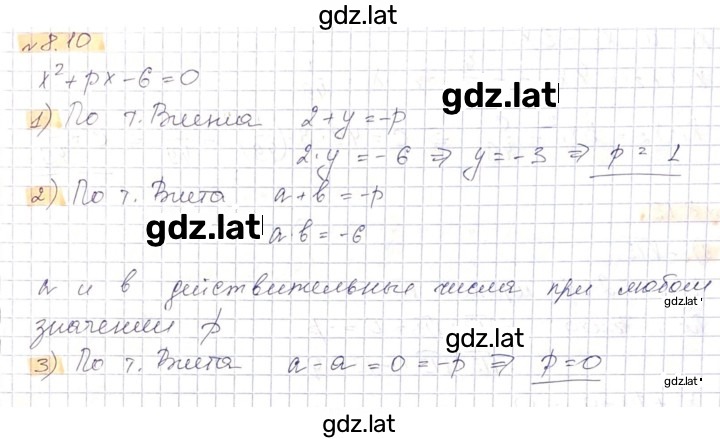 gdz.lat
№ 8.10
x² + px - 6 = 0
gdz.lat
1) По т. Виента 2 + y = -p
2·y = -6 ⇒ y = -3 ⇒ p = 1
2) По т. Виета a + b = -p
gdz.lat a·b = -6
a и b действительные числа при любом
gdz.lat
значении p
gdz.lat
3) По т. Виета a - a = 0 = -p ⇒ p = 0
gdz.lat
gdz.lat